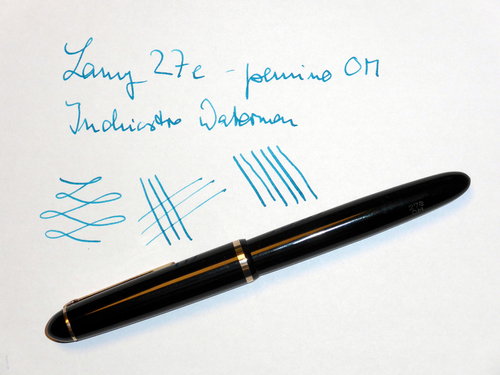 Lamy 27e - pennino OM
Inchiostro Waterman